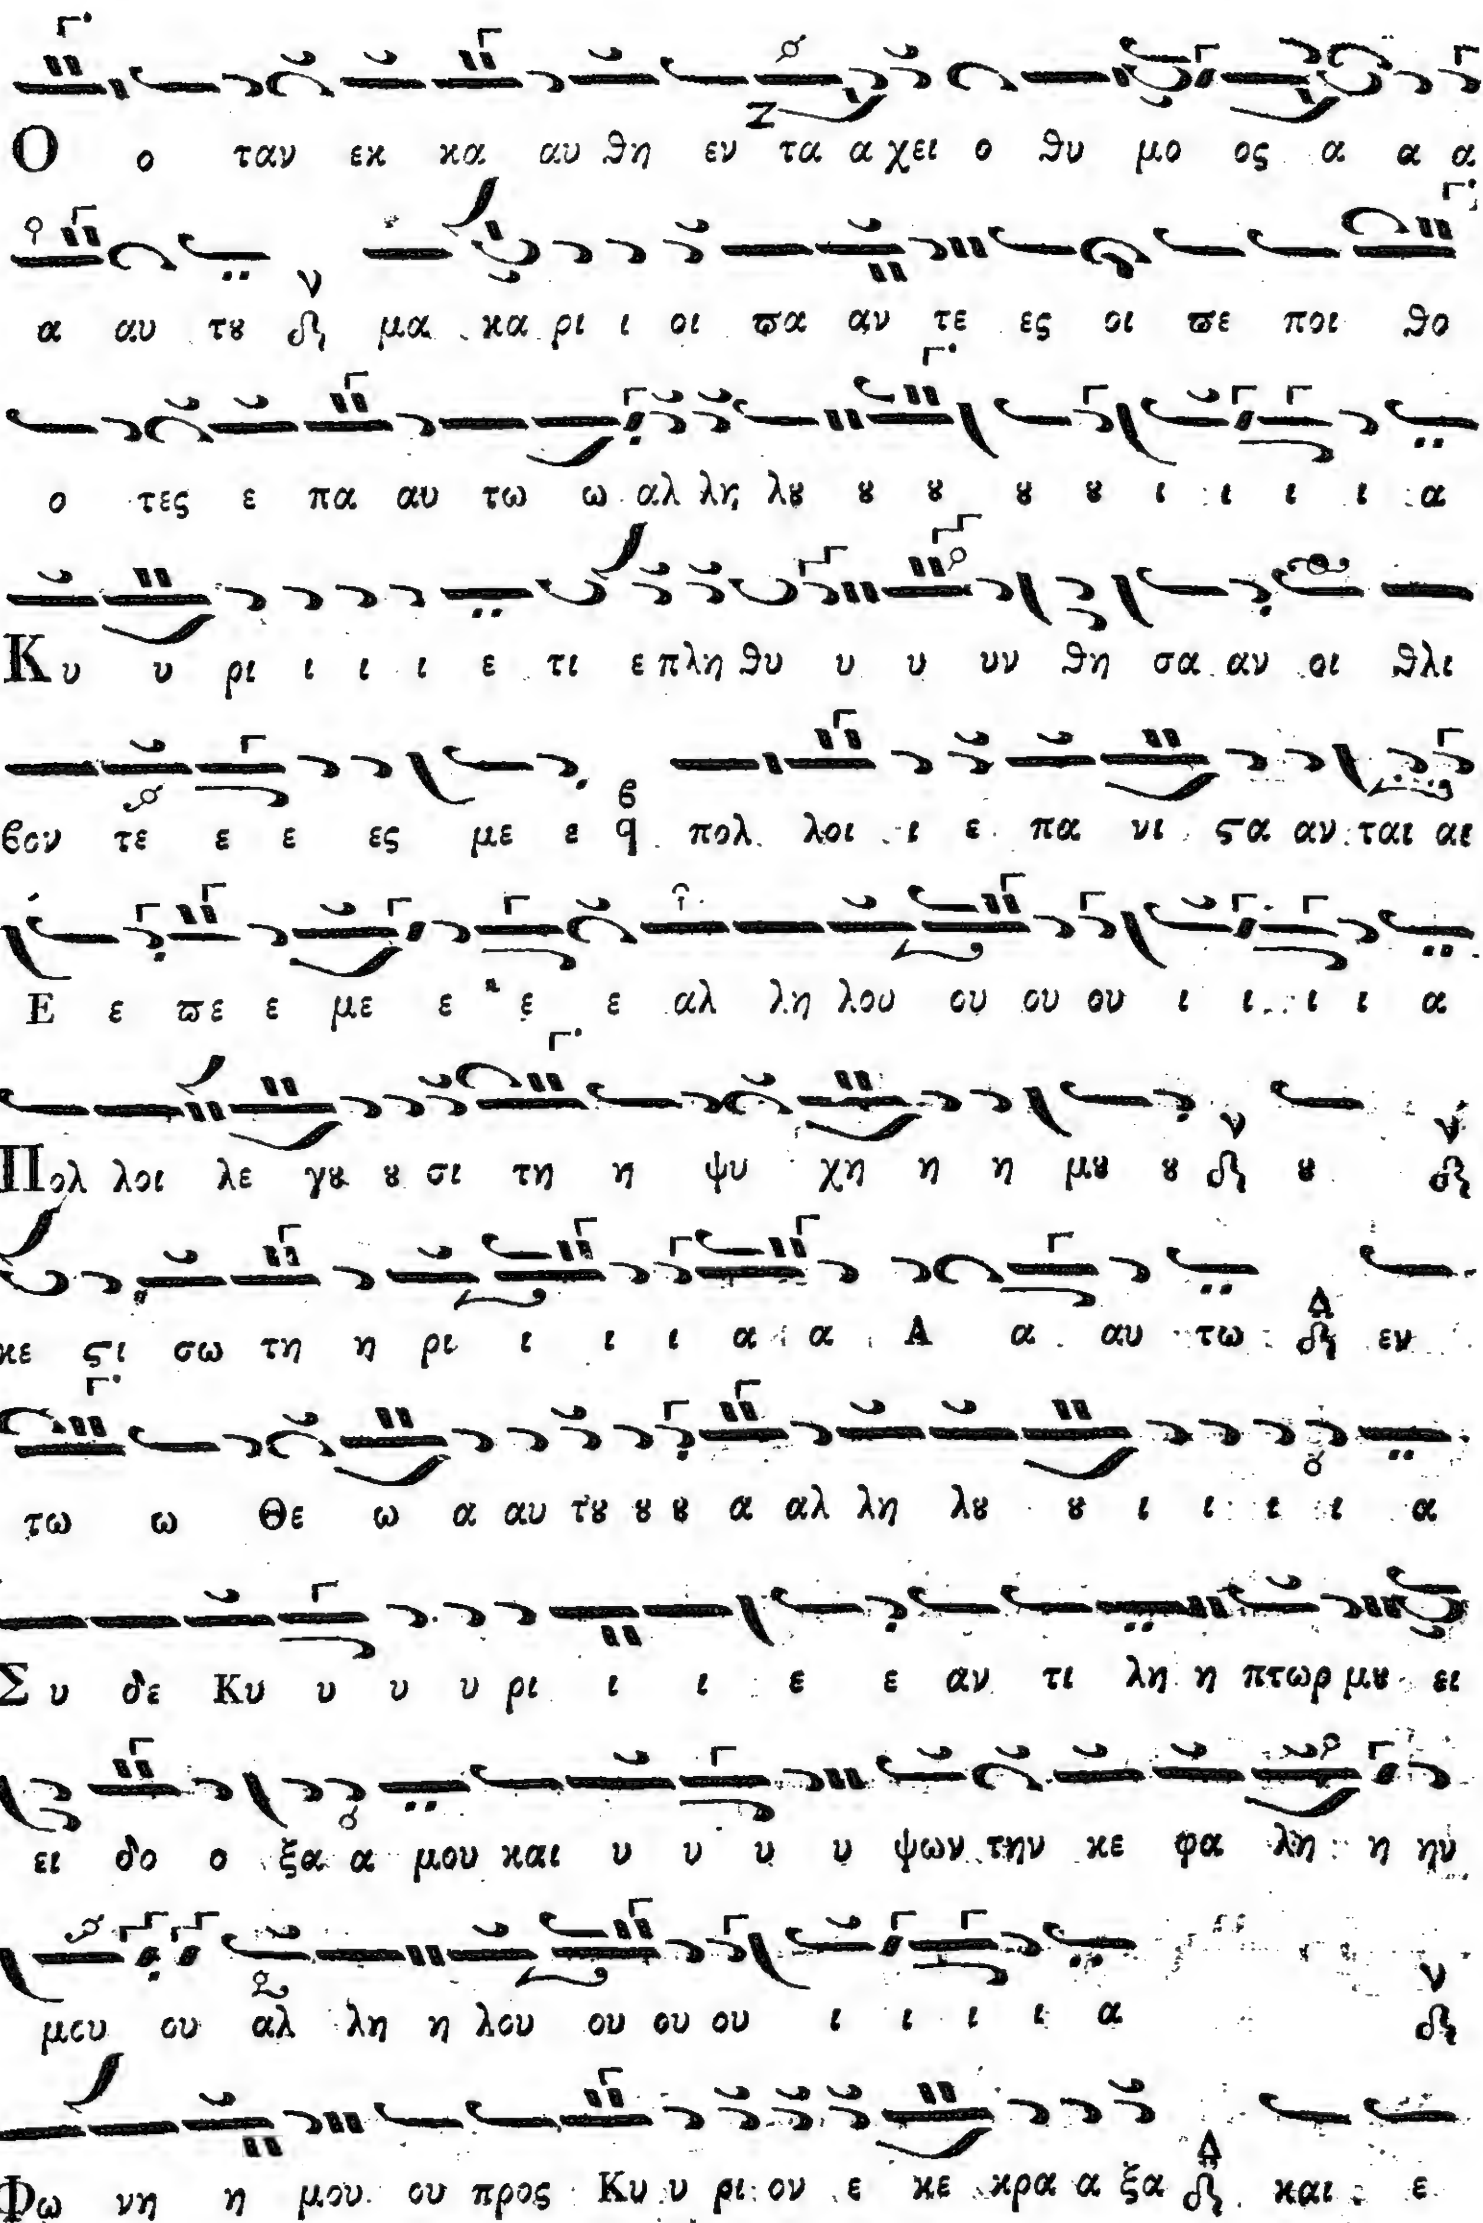 Ο ο ταν εκ κα αυ θη εν τα α χει ο θυ μο ος α α α
α αυ τȣ μα κα ρι ι οι ϖα αν τε ες οι ϖε ποι θο
ο τες ε πα αυ τω ω αλ λη λȣ ȣ ȣ ȣ ȣ ι ι ι ι α
Κυ υ ρι ι ι ι ε τι ε πλη θυ υ υ υν θη σα αν οι θλι
βον τε ε ε ες με ε πολ λοι ι ε πα νι ϛα αν ται αι
Ε ε ϖε ε με ε ε ε αλ λη λου ου ου ου ι ι ι ι α
Πολ λοι λε γȣ ȣ σι τη η ψυ χη η η μȣ ȣ ȣ
κε ϛι σω τη η ρι ι ι ι α α Α α αυ τω εν
τω ω Θε ω α αυ τȣ ȣ ȣ α αλ λη λȣ ȣ ι ι ι ι α
Συ δε Κυ υ υ υ ρι ι ι ε ε αν τι λη η πτωρ μȣ ει
ει δο ο ξα α μου και υ υ υ υ ψων την κε φα λη η ην
μου ου αλ λη η λου ου ου ου ι ι ι ι α
Φω νη η μου ου προς Κυ υ ρι ον ε κε κρα α ξα και ε